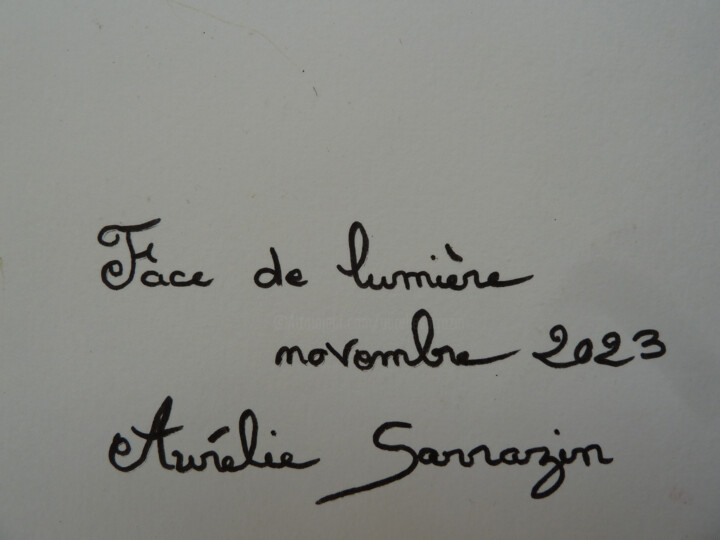 Face de lumière
novembre 2023
Aurélie Sarrazin